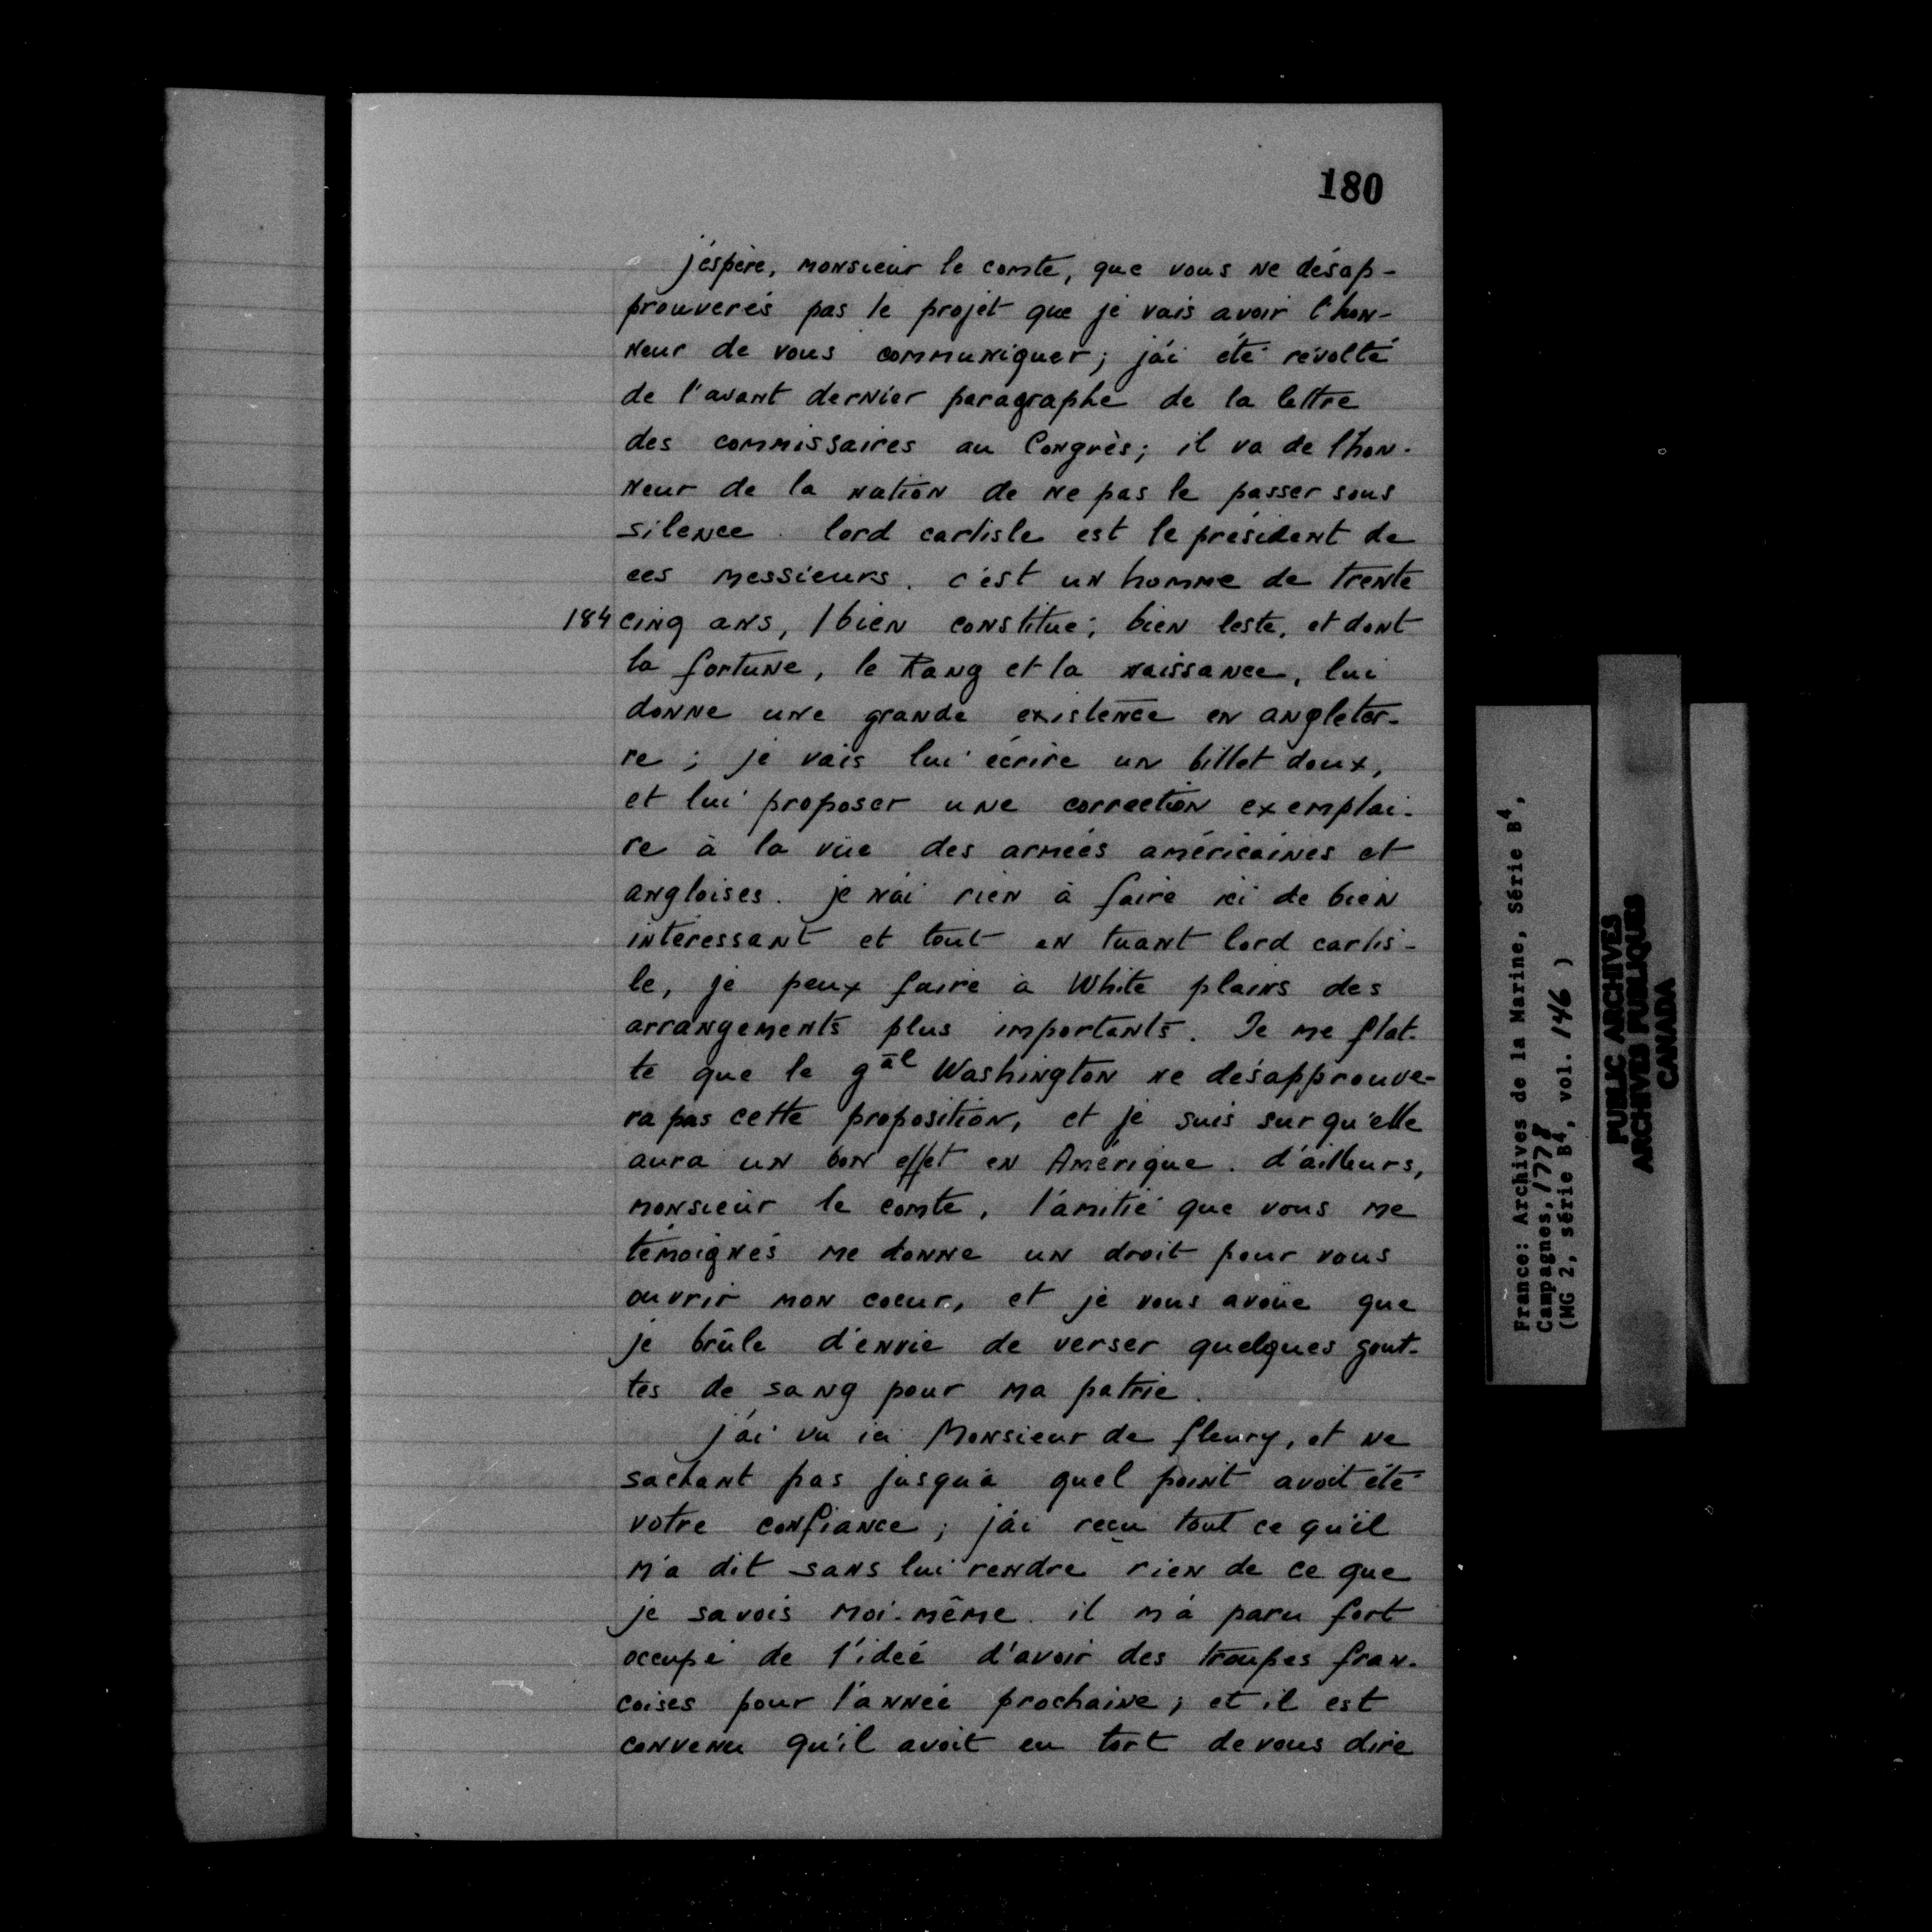 180
j'éspère, monsieur le comte, que vous ne désap-
prouverés pas le projet que je vais avoir l'hon-
neur de vous communiquer; j'ai été révolté
de l'avant dernier paragraphe de la lettre
des commissaires au Congrès; il va de l'hon-
neur de la nation de ne pas le passer sous
silence. lord carlisle est le président de
ces messieurs. c'est un homme de trente
184 cinq ans, / bien constitué; bien leste, et dont
la fortune, le Rang et la naissance, lui
donne une grande existence en angleter-
re; je vais lui écrire un billet doux,
et lui proposer une correction exemplai-
re à la vüe des armées américaines et
angloises. je n'ai rien à faire ici de bien
intéressant et tout en tuant lord carlis-
le, je peux faire à White plains des
arrangements plus importants. Je me flat-
te que le gāl Washington ne désapprouve-
ra pas cette proposition, et je suis sur qu'elle
aura un bon effet en Amérique. d'ailleurs,
monsieur le comte, l'amitié que vous me
témoignés me donne un droit pour vous
ouvrir mon coeur, et je vous avoüe que
je brûle d'envie de verser quelques gout-
tes de sang pour ma patrie.
j'ai vu ici Monsieur de fleury, et ne
sachant pas jusqu'à quel point avoit été
votre confiance; j'ai reçu tout ce qu'il
m'a dit sans lui rendre rien de ce que
je savois moi-même. il m'a paru fort
occupé de l'idée d'avoir des troupes fran-
coises pour l'année prochaine; et il est
convenu qu'il avoit eu tort de vous dire
France: Archives de la Marine, Série B4,
Campagnes, 1778
(MG 2, série B4, vol. 146 )
PUBLIC ARCHIVES
ARCHIVES PUBLIQUES
CANADA